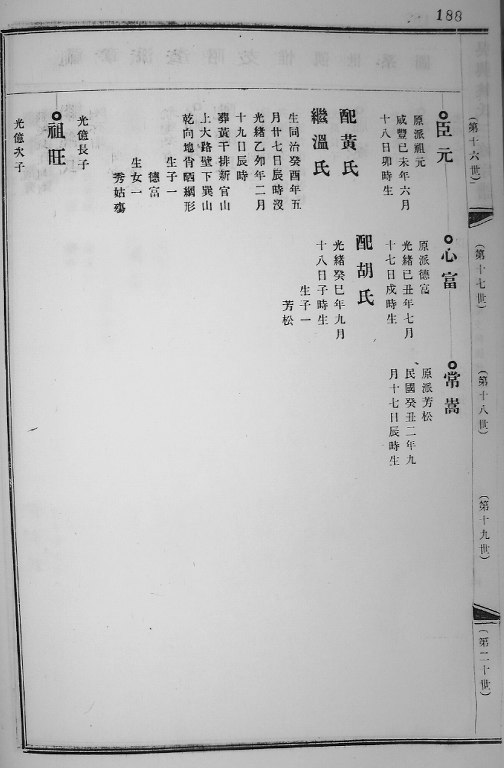 188
(第十六世)
(第十七世)
(第十八世)
(第十九世)
(第二十世)
臣元
原派祖元
咸豐己未年六月
十八日卯時生
配黃氏
繼溫氏
生同治癸酉年五
月廿七日辰時沒
光緒乙卯年二月
十九日辰時
葬黃干排新官山
上大路壁下巽山
乾向地肖晒網形
生子一
德富
生女一
秀姑殤
心富
原派德富
光緒己丑年七月
十七日戍時生
配胡氏
光緒癸巳年九月
十八日子時生
生子一
芳松
常嵩
原派芳松
民國癸丑二年九
月十七日辰時生
光億長子
祖旺
光億次子